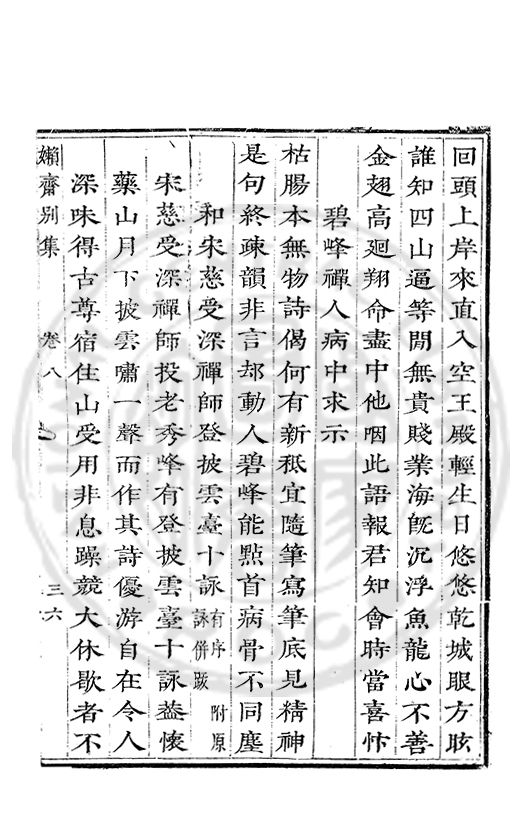 回頭上岸來直入空王殿輕生日悠悠乾城眼方眩
誰知四山逼等閒無貴賤業海旣沉浮魚龍心不善
金翅高迴翔命盡中他咽此語報君知會時當喜忭
碧峰禪人病中求示
枯腸本無物詩偈何有新秪宜隨筆寫筆底見精神
是句終疎韻非言却動人碧峰能點首病骨不同塵
和宋慈受深禪師登披雲臺十詠有序附原詠併跋
宋慈受深禪師投老秀峰有登披雲臺十詠葢懷
藥山月下披雲嘯一聲而作其詩優游自在令人
深味得古尊宿住山受用非息躁競大休歇者不
嬾齋别集 卷八 三六